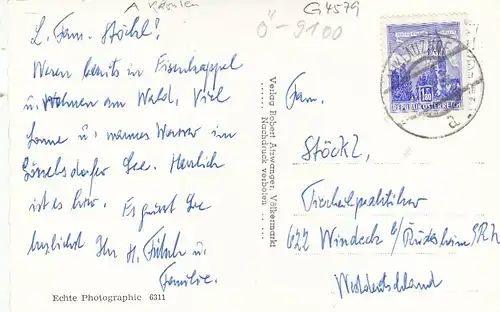 A Kärnten
G 4579
Ö - 9100
L. Fam. Stöckl!
Waren bereits in Eisenkappel
u. wohnen am Wald, Viel
Sonne u. warmes Wasser im
Gösselsdorfer See. Herrlich
ist es hier. Es grüsst Sie
herzlichst Ihr H. u.
Familie.
Echte Photographie 6311
Verlag Robert Atzwanger, Völkermarkt
Nachdruck verboten
1.80
REPUBLIK ÖSTERREICH
Fam.
Stöckl,
Tierheilpraktiker
622 Windeck b/Rüdesheim
Westdeutschland